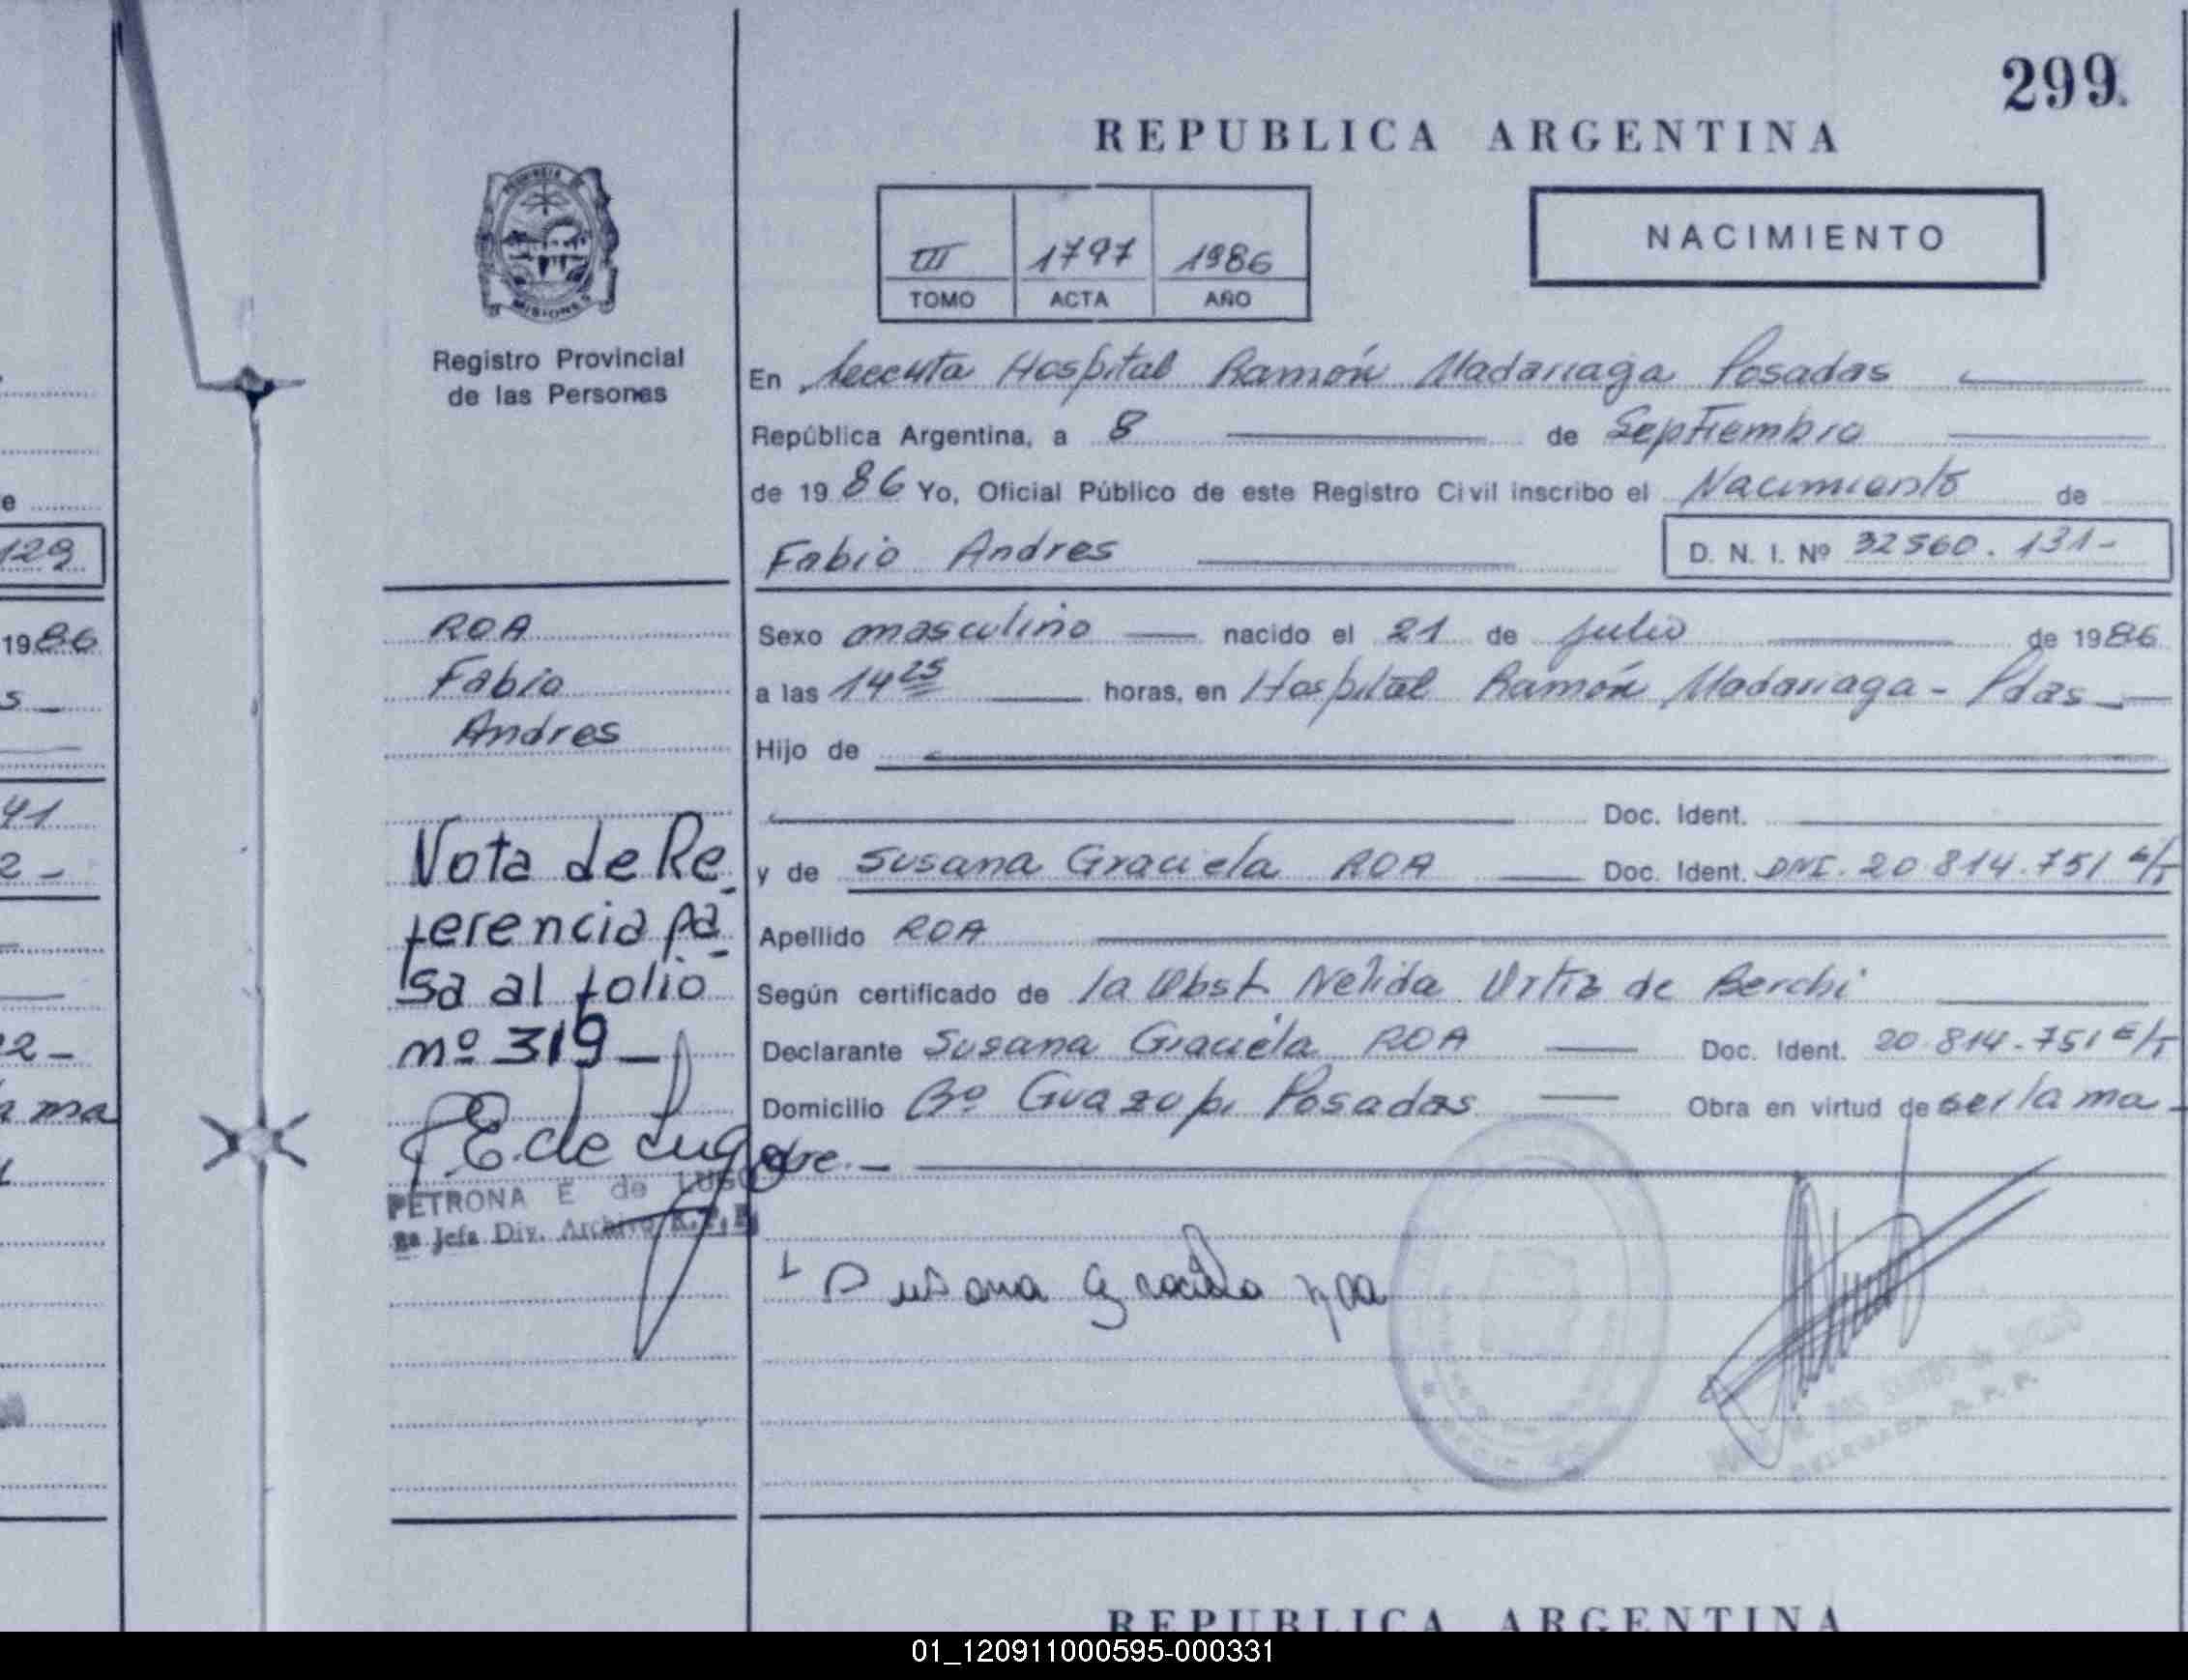 299
REPUBLICA ARGENTINA
PROVINCIA DE
MISIONES
III 1797 1986
TOMO ACTA AÑO
NACIMIENTO
Registro Provincial
de las Personas
En Hospital Ramón Madariaga Posadas
República Argentina, a 8 de Septiembre
de 1986 Yo, Oficial Público de este Registro Civil inscribo el Nacimiento de
Fabio Andres
D. N. I. Nº 32560.131-
ROA
Fabio
Andres
Sexo masculino nacido el 21 de julio de 1986
a las 14 25 horas, en Hospital Ramón Madariaga - Pdas
Hijo de
Doc. Ident.
y de Susana Graciela ROA Doc. Ident. DNI. 20 814.751 E/T
Apellido ROA
Según certificado de la Obst Nélida Ortiz de Berchi
Declarante Susana Graciela ROA Doc. Ident. 20 814.751 E/T
Domicilio Bº Guazupi Posadas Obra en virtud de ser la ma
dre.-
Nota de Re
ferencia pa
sa al folio
nº 319-
P E. de Lugo
PETRONA E de LUGO
Jefa Div. Archivo R.P.P.
Susana Graciela roa
129
1986
s
41
2-
2-
a ma
REPUBLICA ARGENTINA
01_120911000595-000331